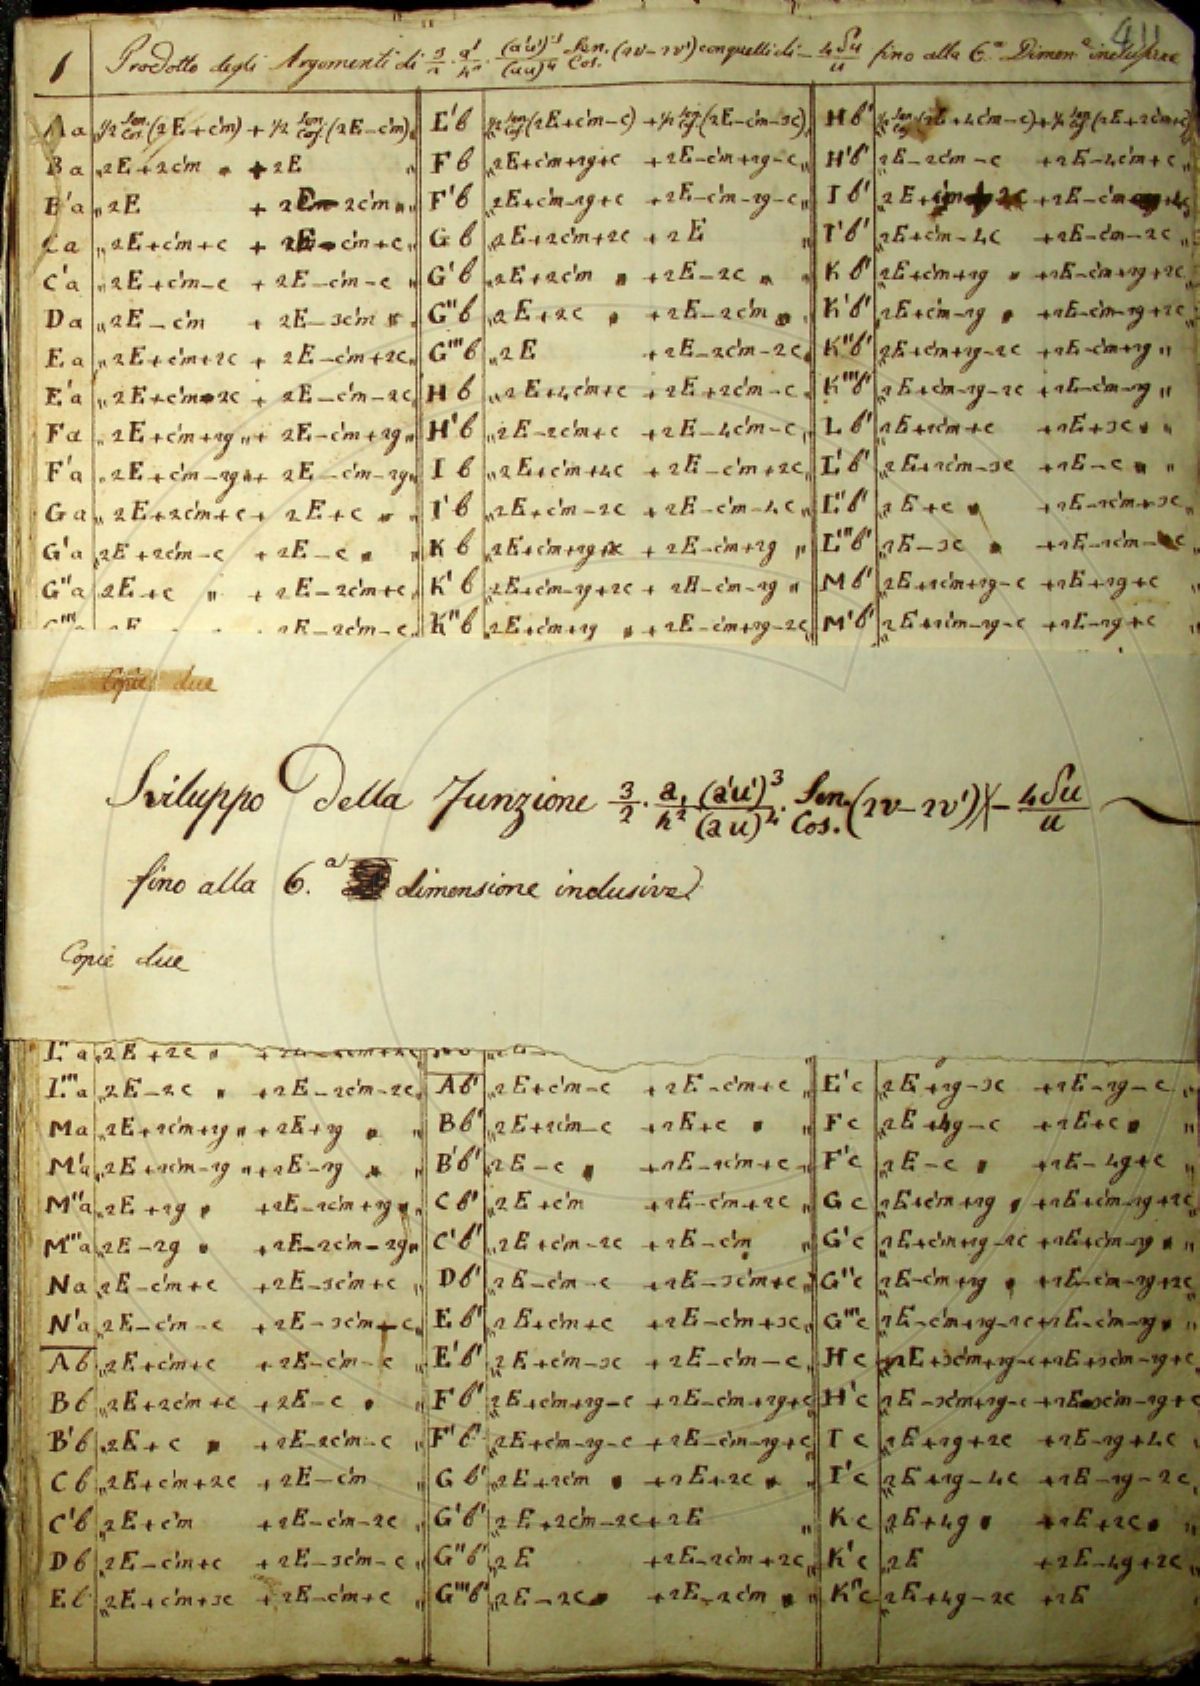 411
1 Prodotto degli Argomenti di 3/2 . a'/h² . (a'u')³/(au)⁴ Sen./Cos. (2v-2v') con quelli di - 4δu/u fino alla 6.ª Dimen.e inclusive
Aa ½ Sen./Cos. (2E+c'm) + ½ Sen./Cos. (2E-c'm) E'b ½ Sen./Cos. (2E+c'm-c) + ½ Sen./Cos. (2E-c'm-3c) Hb' ½ Sen./Cos. (2E+4c'm-c) + ½ Sen./Cos. (2E+2c'm+c)
Ba „2E+2c'm „ +2E „ Fb „2E+c'm+2g+c +2E-c'm+2g-c„ H'b' „2E-2c'm-c +2E-4c'm+c„
B'a „2E + 2E-2c'm„ F'b „2E+c'm-2g+c +2E-c'm-2g-c„ Ib'
Ca „2E+c'm+c + 2E-c'm+c„ Gb „2E+2c'm+2c +2E „ I'b' „2E+c'm-4c +2E-c'm-2c„
C'a „2E+c'm-c + 2E-c'm-c„ G'b „2E+2c'm „ +2E-2c „ Kb' „2E+c'm+2g „ +2E-c'm+2g+2c
Da „2E-c'm + 2E-3c'm „ G''b „2E+2c „ +2E-2c'm „ K'b' „2E+c'm-2g „ +2E-c'm-2g+2c
Ea „2E+c'm+2c + 2E-c'm+2c„ G'''b „2E +2E-2c'm-2c„ K''b' „2E+c'm+2g-2c +2E-c'm+2g „
E'a „2E+c'm-2c + 2E-c'm-2c„ Hb „2E+4c'm+c +2E+2c'm-c„ K'''b' „2E+c'm-2g-2c +2E-c'm-2g „
Fa „2E+c'm+2g „+ 2E-c'm+2g„ H'b „2E-2c'm+c +2E-4c'm-c„ Lb' „2E+2c'm+c +2E+3c „
F'a „2E+c'm-2g „+ 2E-c'm-2g„ Ib „2E+c'm+4c +2E-c'm+2c„ L'b' „2E+2c'm-3c +2E-c „
Ga „2E+2c'm+c + 2E+c „ I'b „2E+c'm-2c +2E-c'm-4c„ L''b' „2E+c „ +2E-2c'm+3c„
G'a „2E+2c'm-c +2E-c „ Kb „2E+c'm+2g+2c +2E-c'm+2g „ L'''b' „2E-3c „ +2E-2c'm-c
G''a „2E+c „ +2E-2c'm+c„ K'b „2E+c'm-2g+2c +2E-c'm-2g „ Mb' „2E+2c'm+2g-c +2E+2g+c „
G'''a 2E +2E-2c'm-c„ K''b „2E+c'm+2g „ +2E-c'm+2g-2c M'b' „2E+2c'm-2g-c +2E-2g+c „
Copie due
Sviluppo Della Funzione 3/2 . a,/h² (a'u')³/(au)⁴ . Sen./Cos. (2v-2v')X - 4δu/u
fino alla 6.ª dimensione inclusive
Copie due
L''a „2E+2c „
L'''a „2E-2c „ +2E-2c'm-2c„ Ab' „2E+c'm-c +2E-c'm+c„ E'c „2E+2g-3c +2E-2g-c„
Ma „2E+2c'm+2g „+2E+2g „ Bb' „2E+2c'm-c +2E+c „ Fc „2E+4g-c +2E+c „
M'a „2E+2c'm-2g „+2E-2g „ B'b' „2E-c „ +2E-2c'm+c„ F'c „2E-c „ +2E-4g+c „
M''a „2E+2g „ +2E-2c'm+2g„ Cb' „2E+c'm +2E-c'm+2c„ Gc „2E+c'm+2g „ +2E+c'm-2g+2c
M'''a „2E-2g „ +2E-2c'm-2g„ C'b' „2E+c'm-2c +2E-c'm „ G'c „2E+c'm+2g-2c +2E+c'm-2g „
Na „2E-c'm+c +2E-3c'm+c Db' „2E-c'm-c +2E-3c'm+c„ G''c „2E-c'm+2g „ +2E-c'm-2g+2c
N'a „2E-c'm-c +2E-3c'm-c„ Eb' „2E+c'm+c +2E-c'm+3c„ G'''c „2E-c'm+2g-2c +2E-c'm-2g „
Ab „2E+c'm+c +2E-c'm-c„ E'b' „2E+c'm-3c +2E-c'm-c„ Hc „2E+3c'm+2g-c +2E+3c'm-2g+c
Bb „2E+2c'm+c +2E-c „ Fb' „2E+c'm+2g-c +2E-c'm+2g+c„ H'c „2E-3c'm+2g-c +2E-3c'm-2g+c
B'b „2E+c „ +2E-2c'm-c F'b' „2E+c'm-2g-c +2E-c'm-2g+c„ Ic „2E+2g+2c +2E-2g+4c
Cb „2E+c'm+2c +2E-c'm Gb' „2E+2c'm „ +2E+2c „ I'c „2E+2g-4c +2E-2g-2c
C'b „2E+c'm +2E-c'm-2c G'b' „2E+2c'm-2c +2E „ Kc „2E+4g „ +2E+2c „
Db „2E-c'm+c +2E-3c'm-c G''b' „2E +2E-2c'm+2c„ K'c „2E +2E-4g+2c
Eb „2E+c'm+3c +2E-c'm+c„ G'''b' „2E-2c „ +2E-2c'm „ K''c „2E+4g-2c +2E